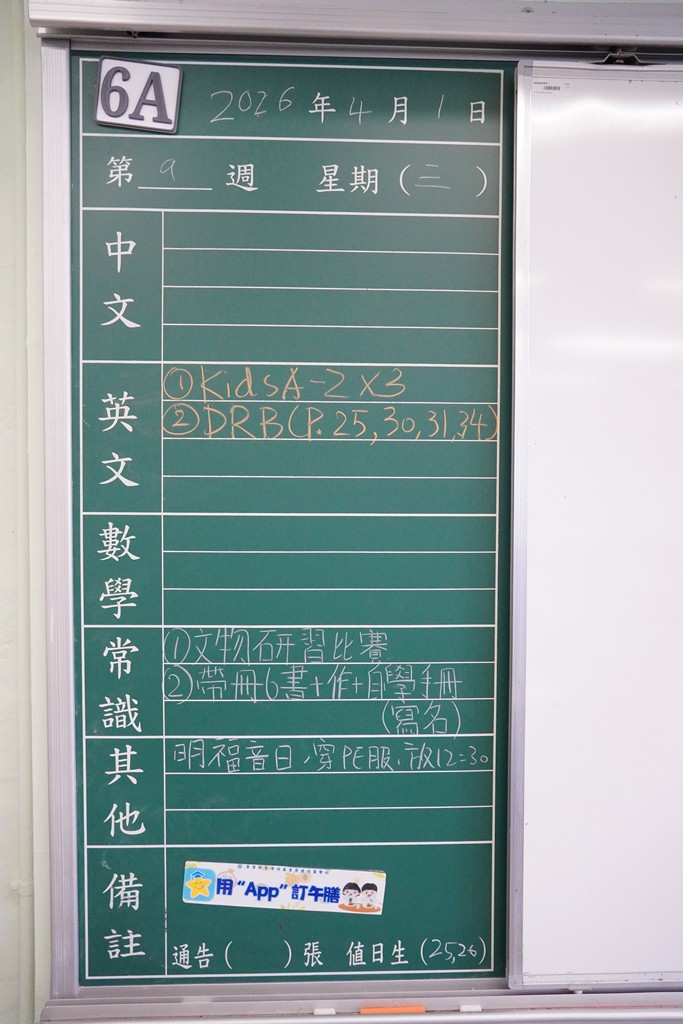 6A
2026年4月1日
第9週 星期(三)
中文
英文
①KidsA-Z x3
②DRB(P.25,30,31,34)
數學
常識
①文物研習比賽
②帶冊6書+作+自學手冊
(寫名)
其他
明福音日,穿PE服,放12:30
備註
用“App”訂午膳
通告( )張 值日生(25,26)